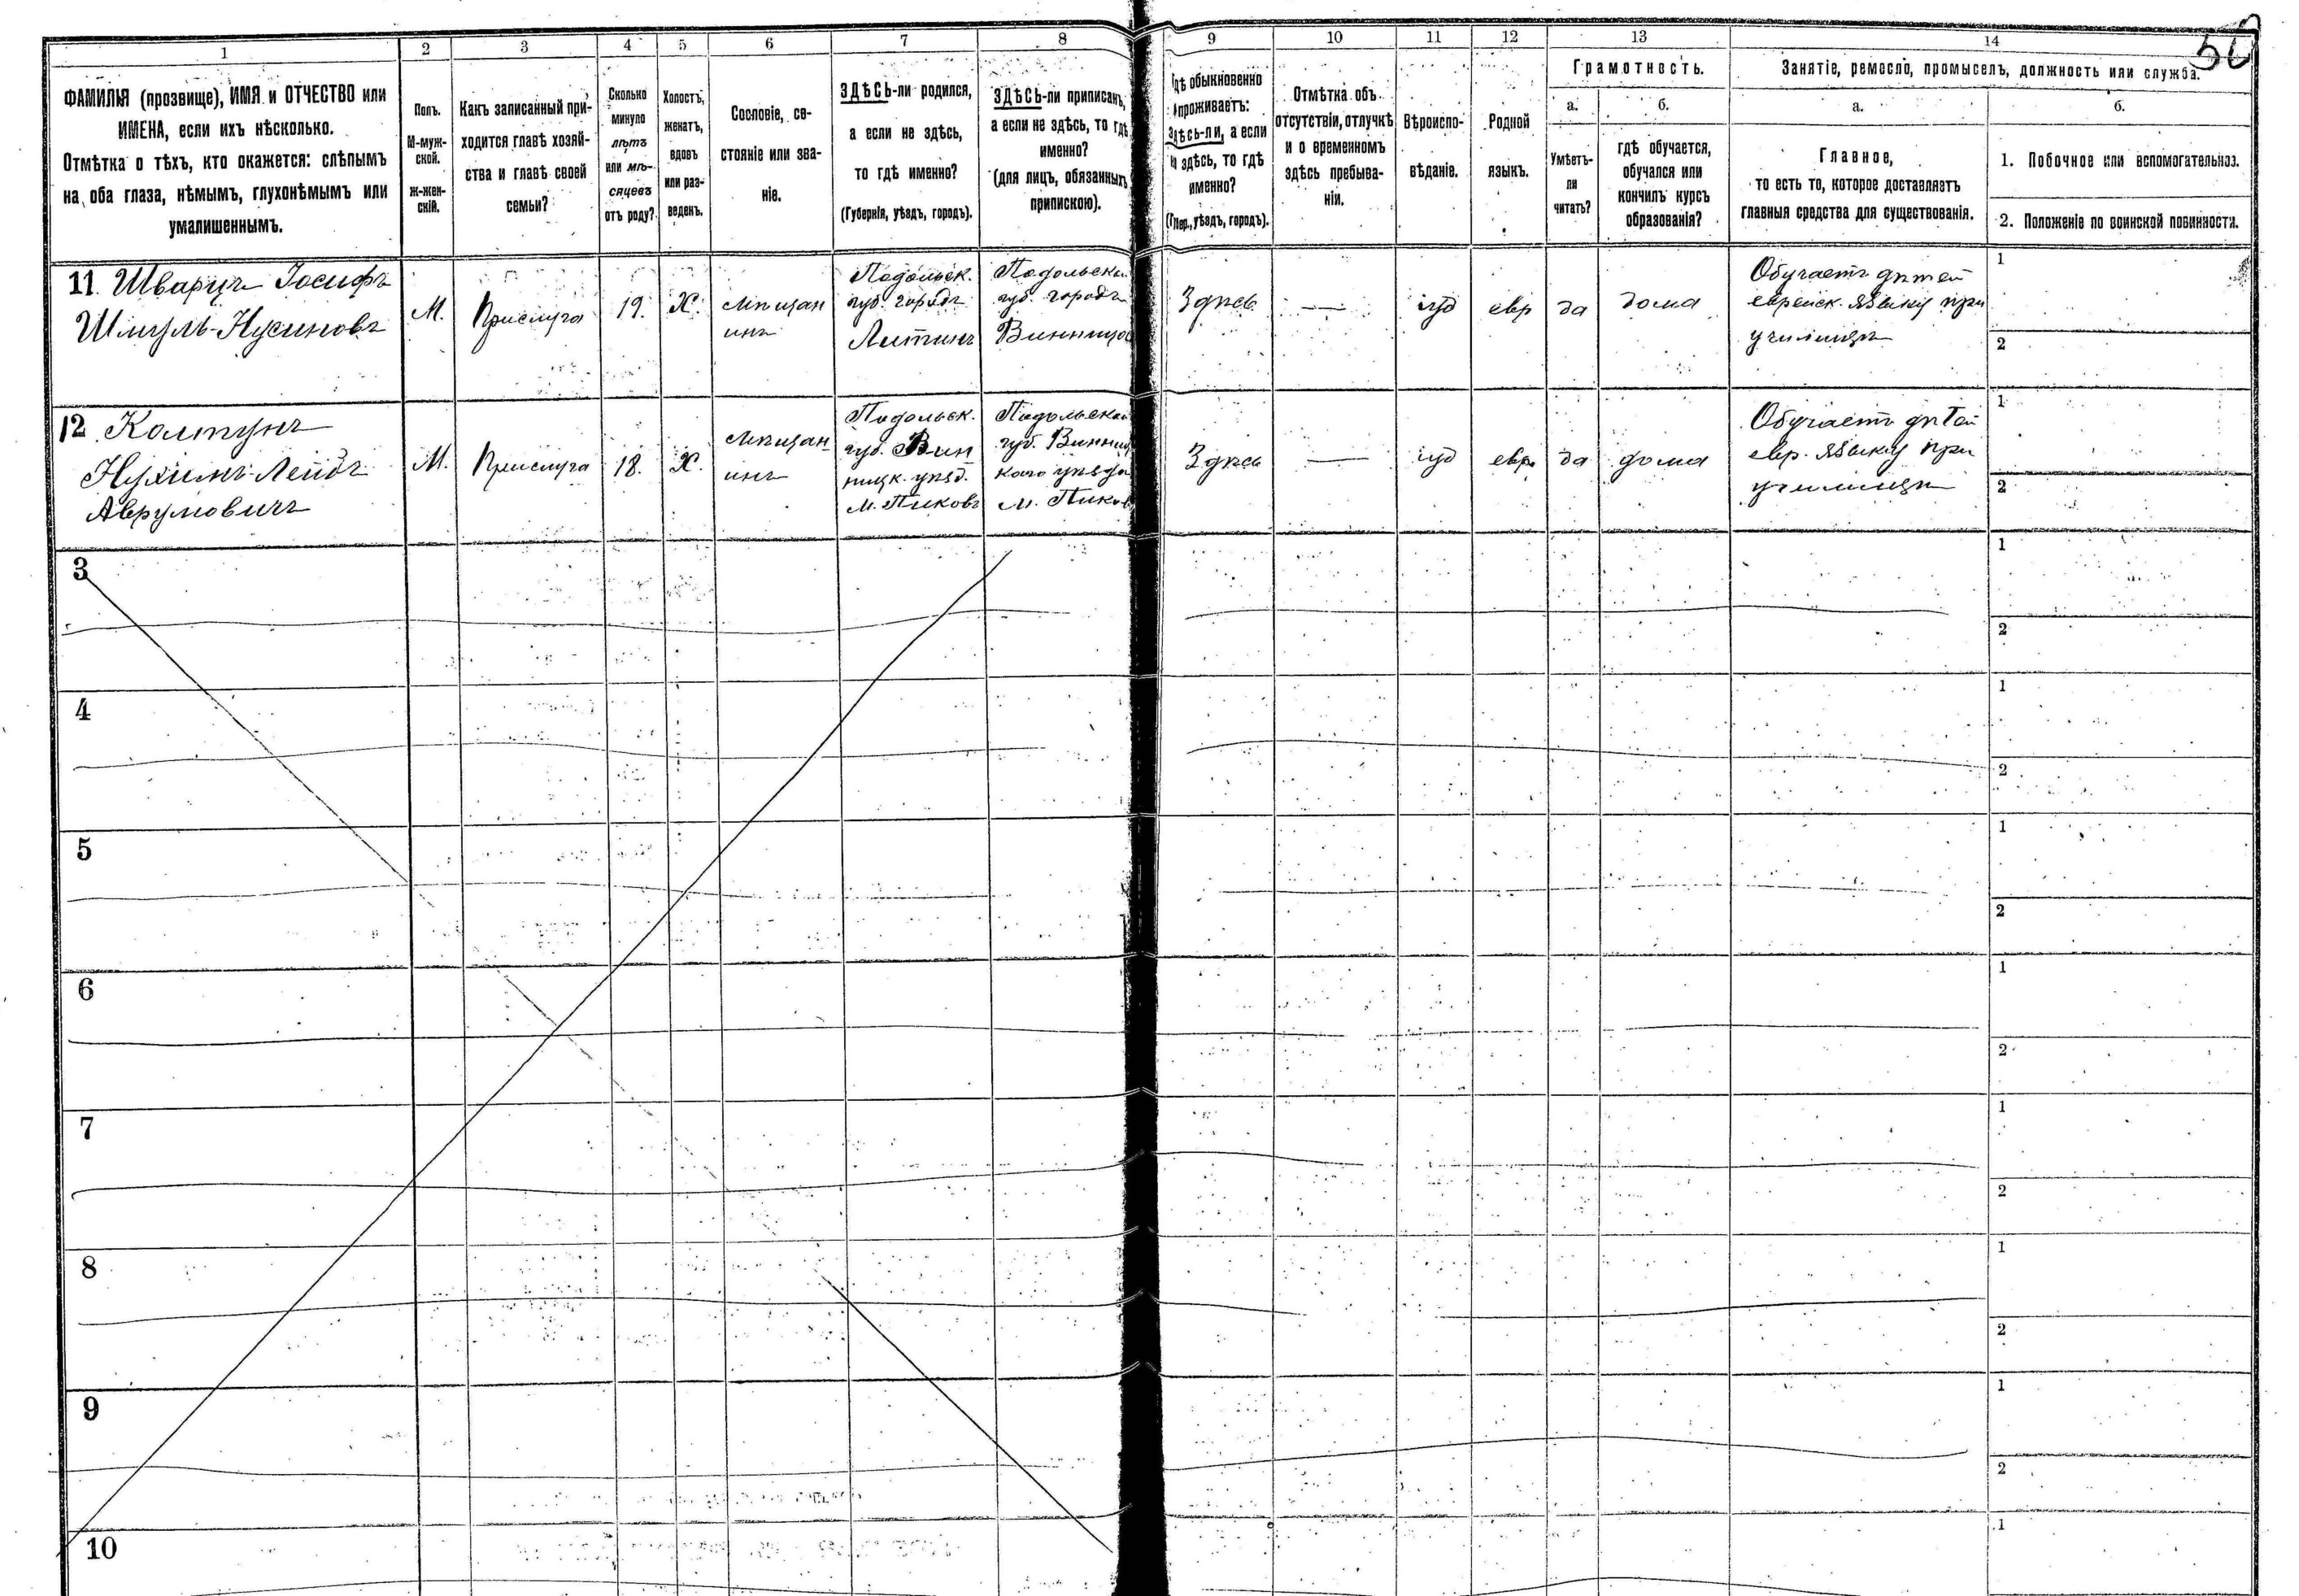 1
2
3
4
5
6
7
8
9
10
11
12
13
14
ФАМИЛІЯ (прозвище), ИМЯ и ОТЧЕСТВО или
ИМЕНА, если ихъ нѣсколько.
Отмѣтка о тѣхъ, кто окажется: слѣпымъ
на оба глаза, нѣмымъ, глухонѣмымъ или
умалишеннымъ.
Полъ.
М-муж-
ской.
Ж-жен-
скій.
Какъ записанный при-
ходится главѣ хозяй-
ства и главѣ своей
семьи?
Сколько
минуло
лѣтъ
или мѣ-
сяцевъ
отъ роду?
Холостъ,
женатъ,
вдовъ
или раз-
веденъ.
Сословіе, со-
стояніе или зва-
ніе.
ЗДѢСЬ-ли родился,
а если не здѣсь,
то гдѣ именно?
(Губернія, уѣздъ, городъ).
ЗДѢСЬ-ли приписанъ,
а если не здѣсь, то гдѣ
именно?
(для лицъ, обязанныхъ
припискою).
Гдѣ обыкновенно
проживаетъ:
здѣсь-ли, а если
не здѣсь, то гдѣ
именно?
(Губер., уѣздъ, городъ).
Отмѣтка объ
отсутствіи, отлучкѣ
и о временномъ
здѣсь пребыва-
ніи.
Вѣроиспо-
вѣданіе.
Родной
языкъ.
Грамотность.
а.
Умѣетъ-
ли
читать?
б.
гдѣ обучается,
обучался или
кончилъ курсъ
образованія?
Занятіе, ремесло, промыселъ, должность или служба.
а.
Главное,
то есть то, которое доставляетъ
главныя средства для существованія.
б.
1. Побочное или вспомогательноз.
2. Положеніе по воинской повинности.
11 Шварцъ Іосифъ
Шмуль-Нусиновъ
М.
Прислуга
19.
Х.
мѣщан
инъ
Подольск.
губ. городъ
Литинъ
Подольска.
губ. городъ
Винница
Здѣсь
—
іуд
евр
да
дома
Обучаетъ дѣтей
еврейск. языку при
училищѣ
1
2
12 Колтунъ
Нухимъ-Лейбъ
Аврумовичъ
М.
Прислуга
18.
Х.
мѣщан
инъ
Подольск.
губ. Вин
ницк. уѣзд.
м. Пиковъ
Подольска.
губ. Винниц
каго уѣзда
м. Пиков
Здѣсь
—
іуд
евр.
да
дома
Обучаетъ дѣтей
евр. языку при
училищѣ
1
2
3
1
2
4
1
2
5
1
2
6
1
2
7
1
2
8
1
2
9
1
2
10
1